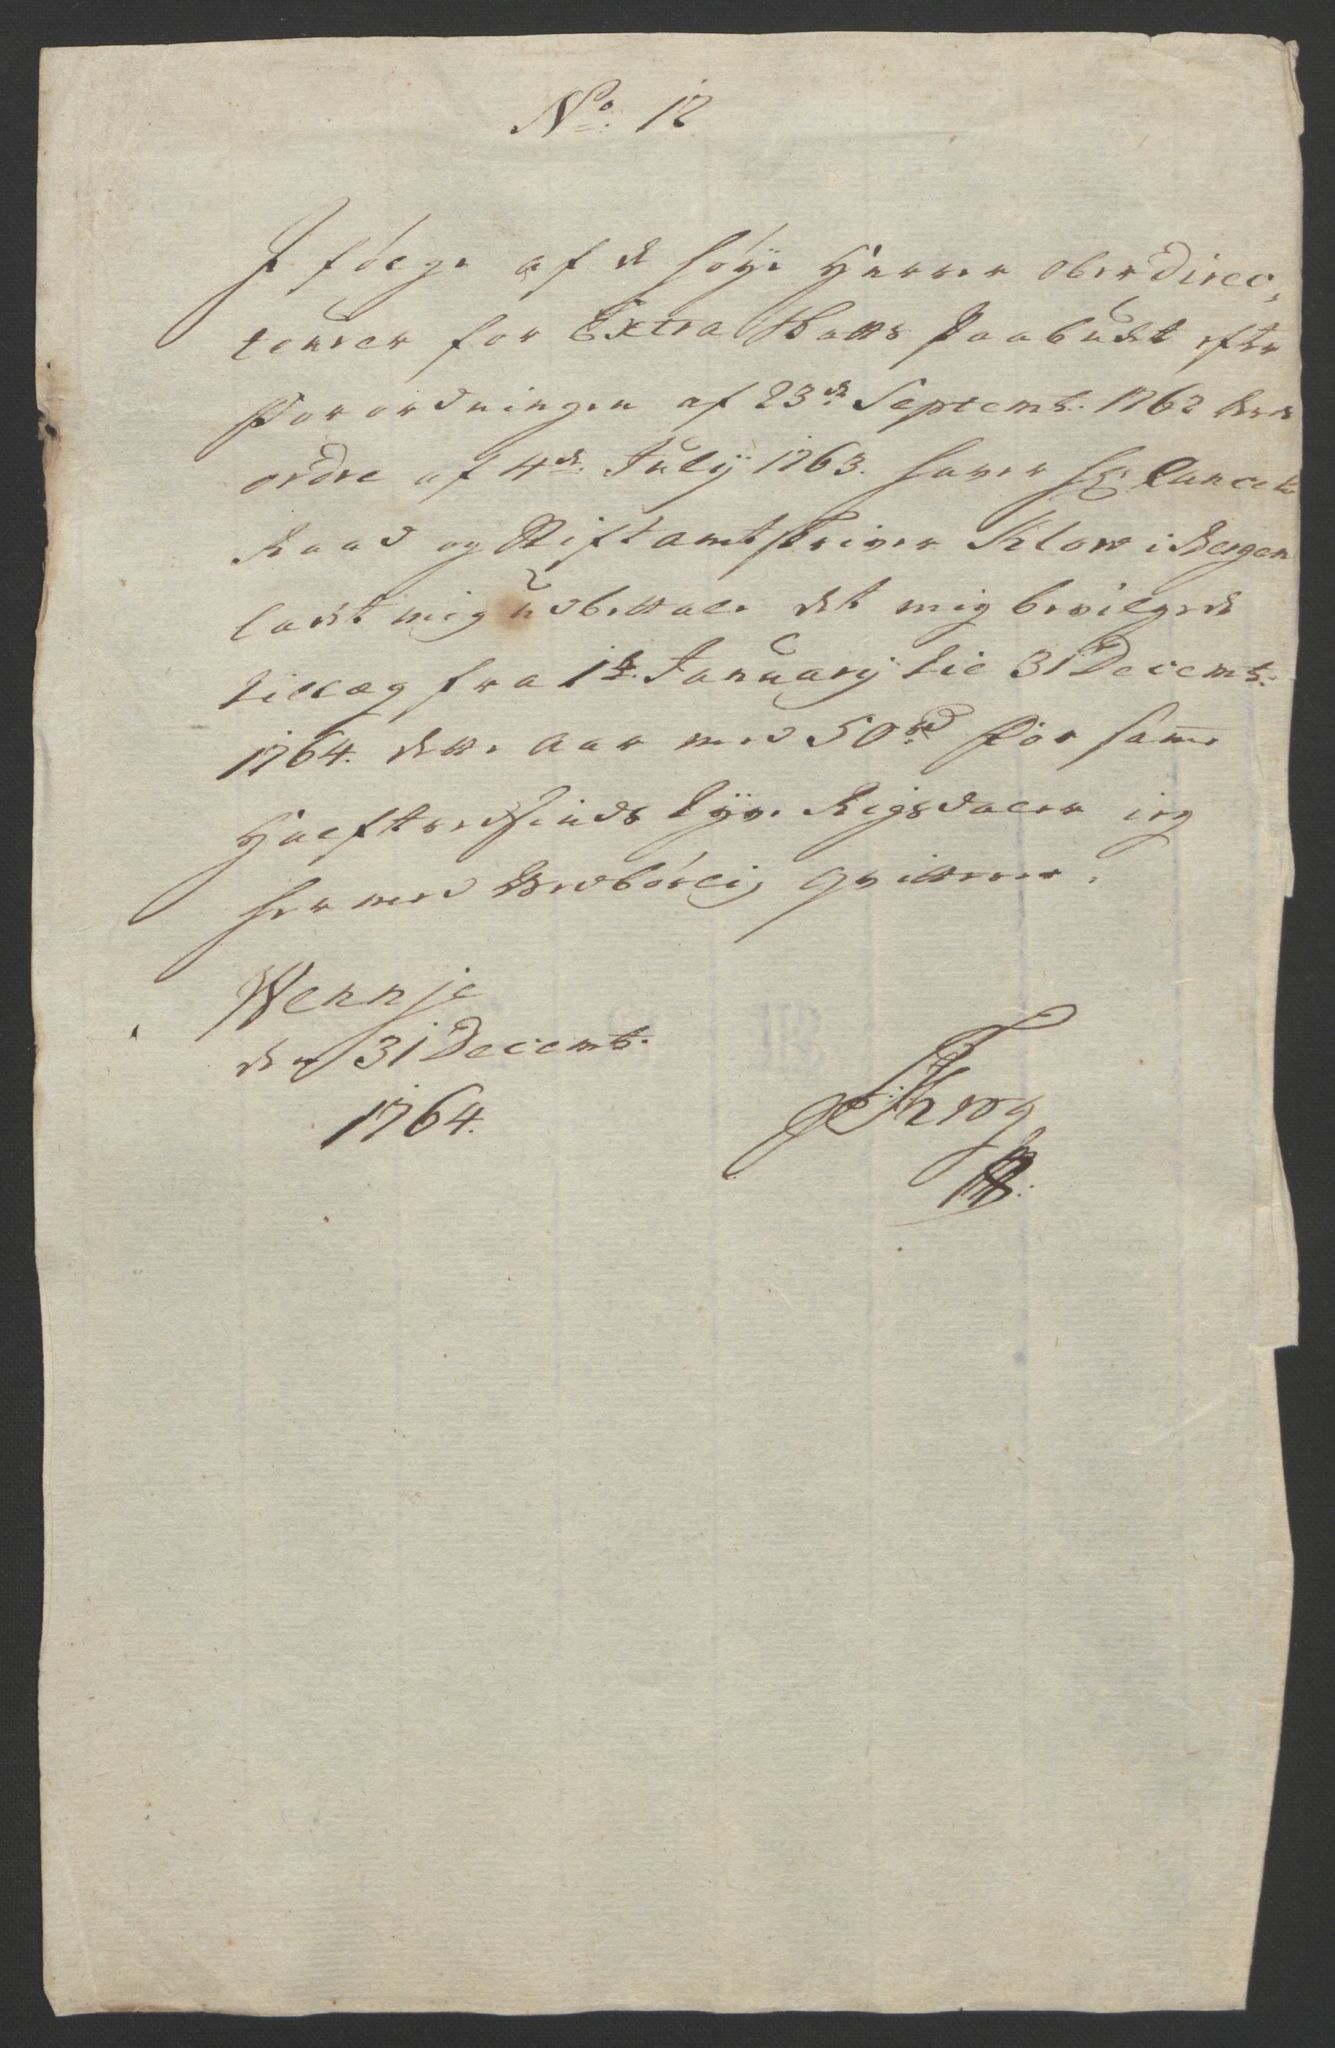 No. 12
I følge af de høye Herrer Ober Direc,
teurer for Extra Skatts Paabudet efter
Forordningen af 23de Septemb. 1762 deres
ordre af 4de July 1763. haver Hr. Cancelie
Raad og Stiftamtskriver Klow i Bergen
ladet mig udbettale det mig bevilgede
tillæg fra 1te January til 31 Decemb.
1764. dette aar med 50 rd for samme
Halftredsinds tyve Rigsdaler ieg
hermed skyldig qvitterer.
Wennje
den 31 Decemb.
1764.